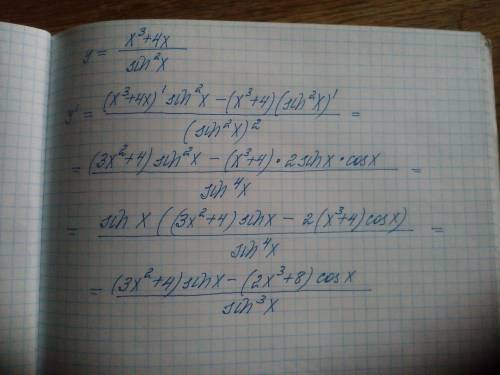 y = (x³+4x)/(sin²x)
y' = ((x³+4x)' sin²x − (x³+4)(sin²x)')/((sin²x)²) =
= ((3x²+4) sin²x − (x³+4) · 2sinx · cosx)/(sin⁴x) =
= (sin x ((3x²+4) sinx − 2(x³+4) cosx))/(sin⁴x) =
= ((3x²+4) sinx − (2x³+8) cosx)/(sin³x)